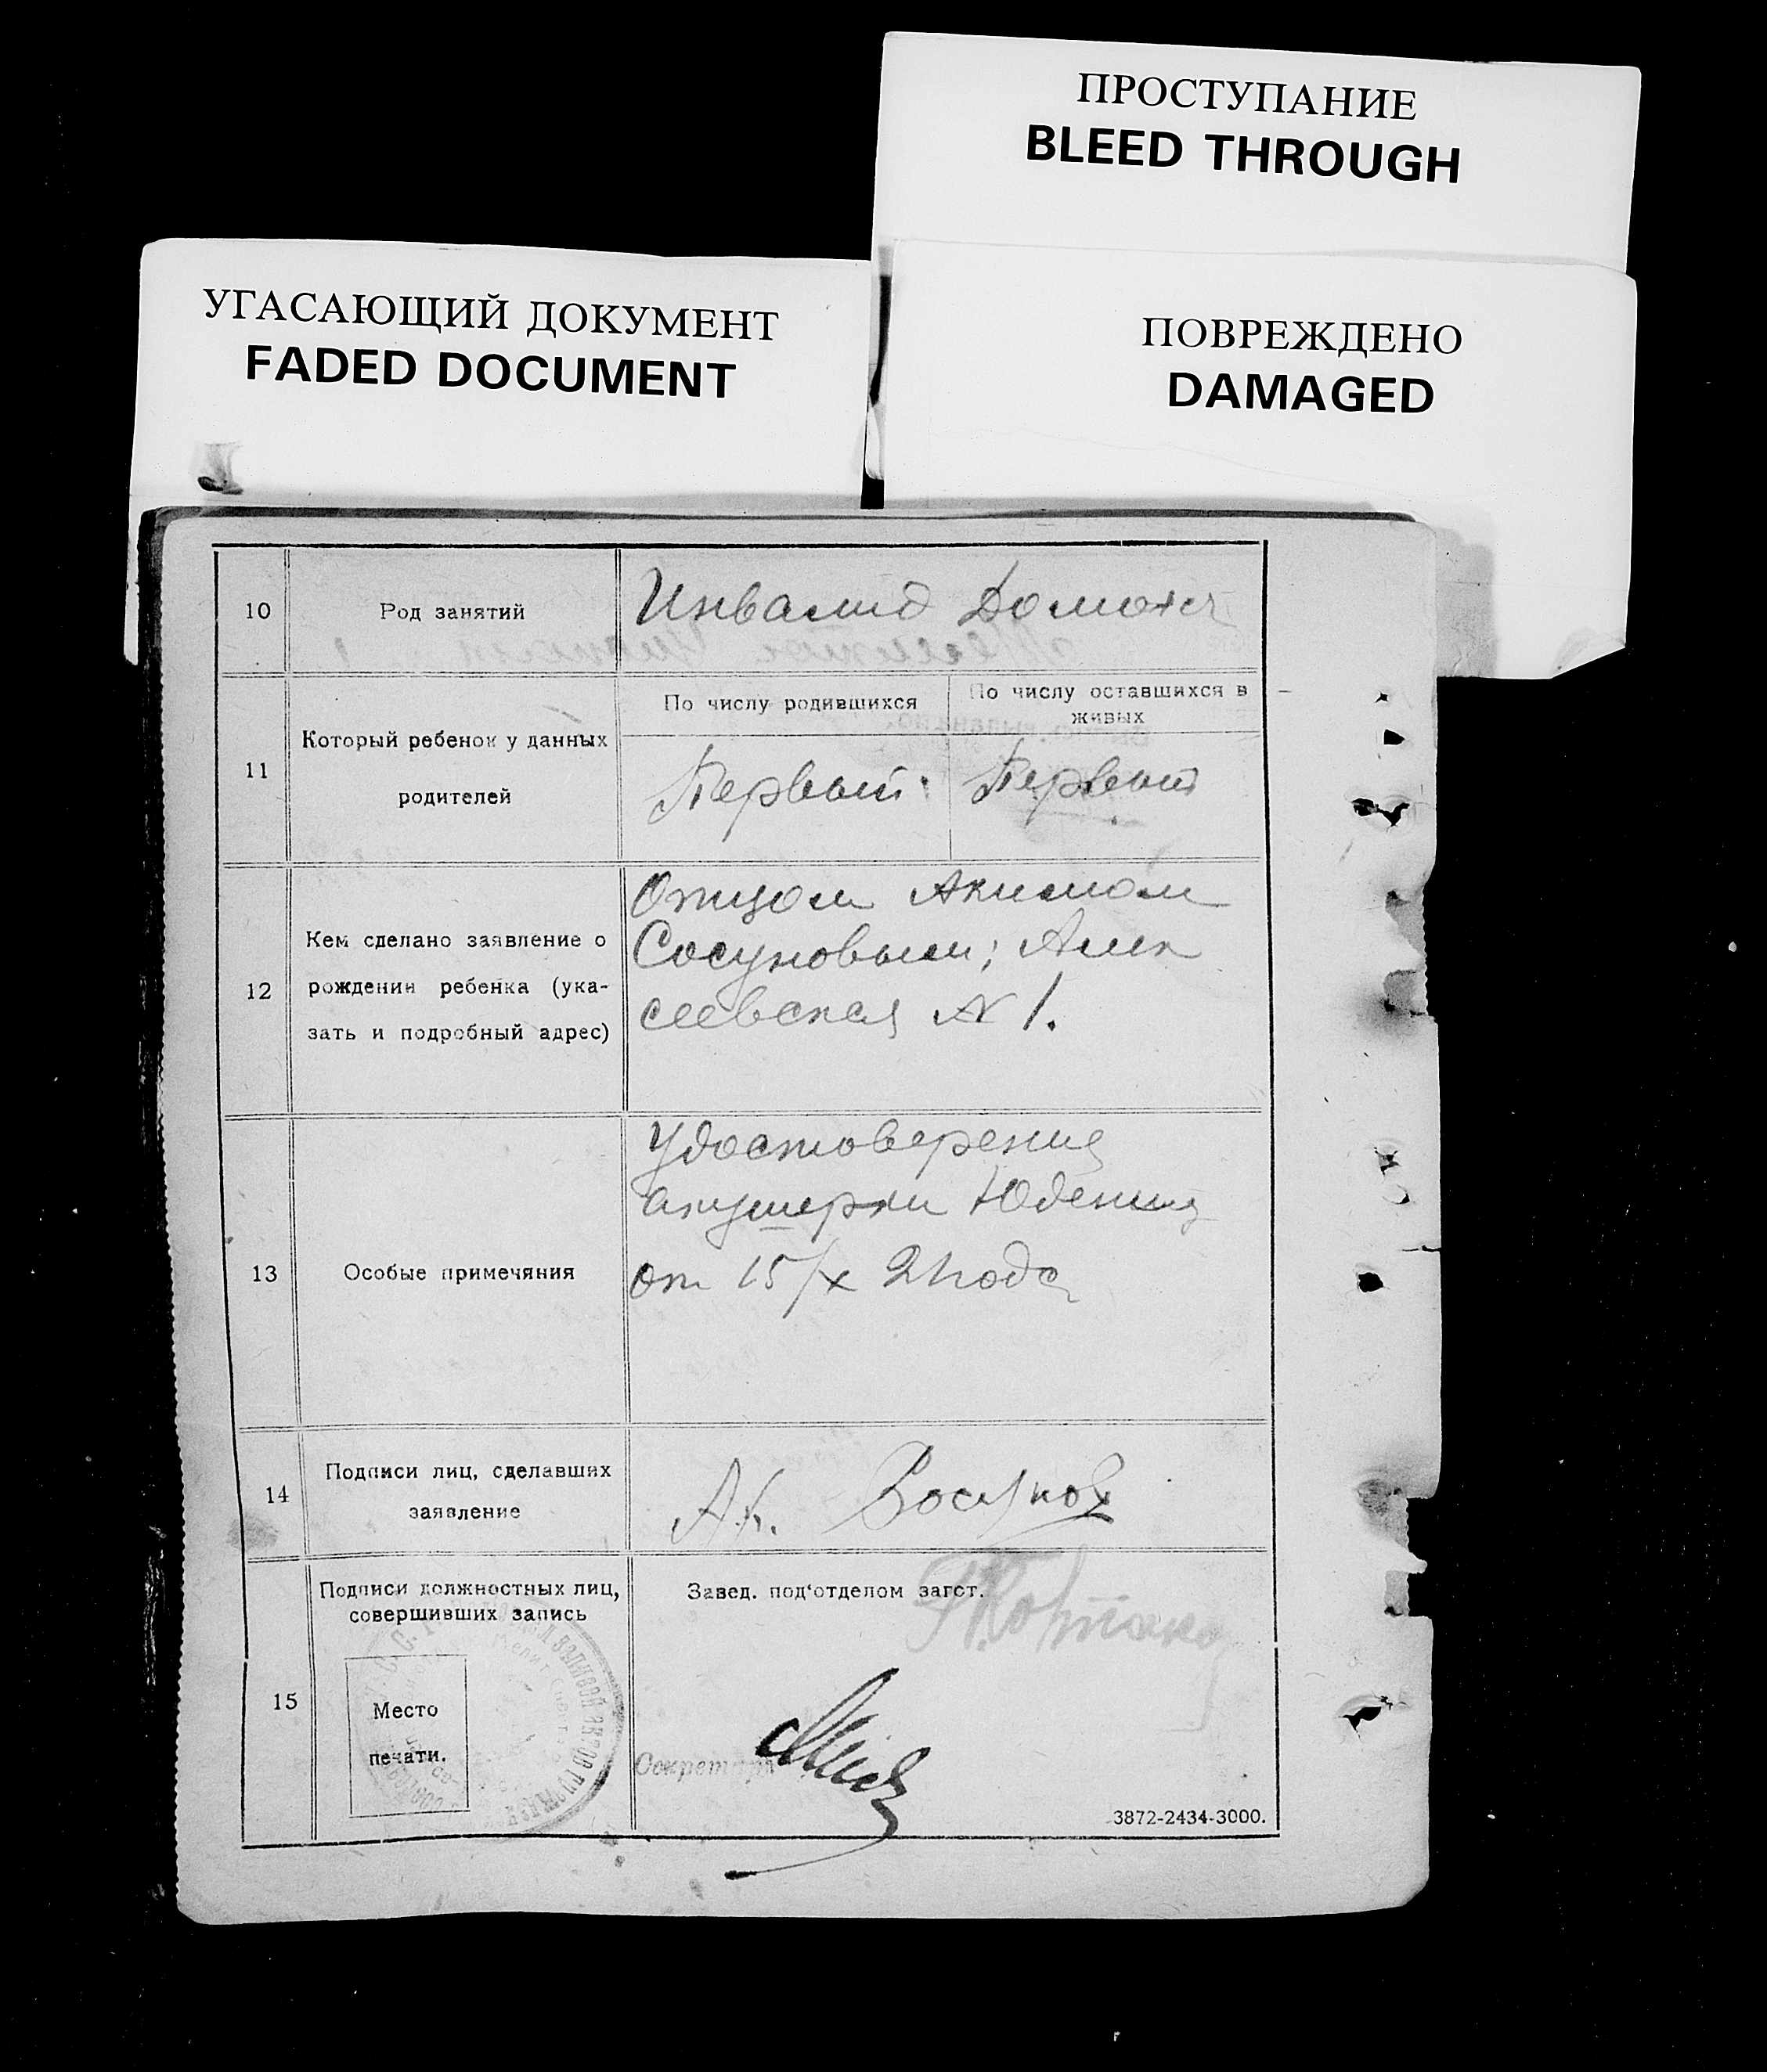 ПРОСТУПАНИЕ
BLEED THROUGH
УГАСАЮЩИЙ ДОКУМЕНТ
FADED DOCUMENT
ПОВРЕЖДЕНО
DAMAGED
10
Род занятий
Инвалид Домохоз
11
Который ребенок у данных
родителей
По числу родившихся
По числу оставшихся в
живых
Первый
Первый
12
Кем сделано заявление о
рождении ребенка (ука-
зать и подробный адрес)
Отцом Акимом
Сосуновым; Алек
сеевская N 1.
13
Особые примечяния
Удостоверение
акушерки Юдениц
от 15/х 21 года
14
Подписи лиц, сделавших
заявление
Ак. Сосунов
15
Подписи должностных лиц,
совершивших запись
Место
печати.
Завед. под'отделом загст.
Секретарь
3872-2434-3000.